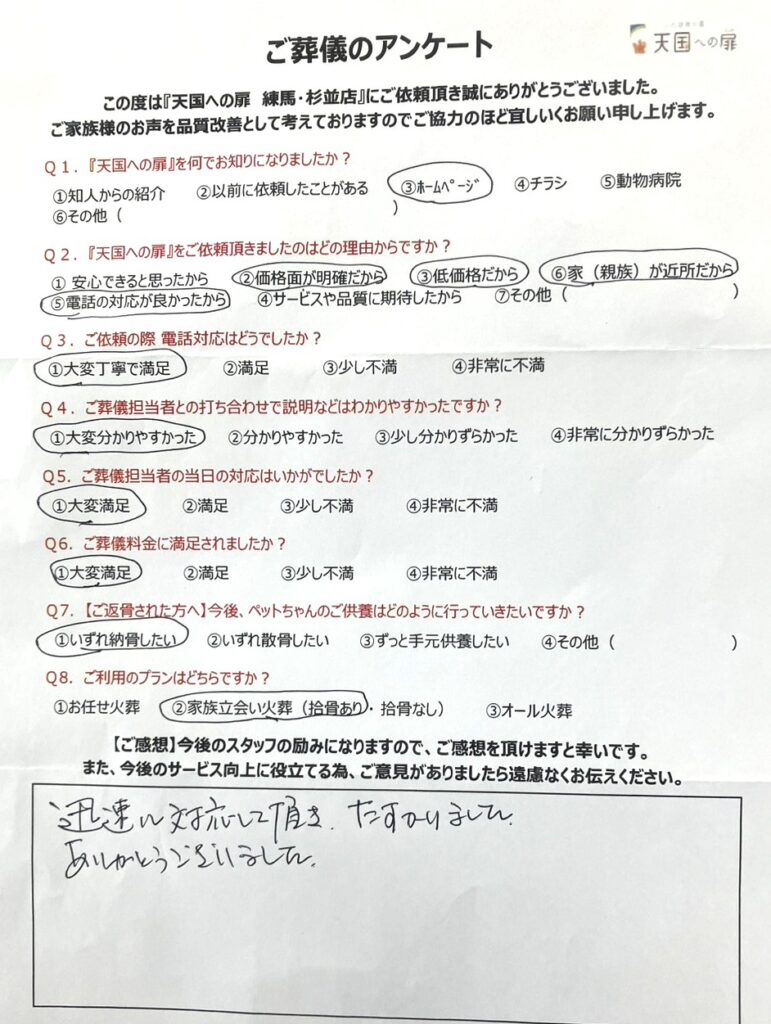 ご葬儀のアンケート
天国への扉
この度は『天国への扉 練馬・杉並店』にご依頼頂き誠にありがとうございました。
ご家族様のお声を品質改善として考えておりますのでご協力のほど宜しいくお願い申し上げます。
Q1.『天国への扉』を何でお知りになりましたか?
①知人からの紹介 ②以前に依頼したことがある ③ホームページ ④チラシ ⑤動物病院
⑥その他( )
Q2.『天国への扉』をご依頼頂きましたのはどの理由からですか?
① 安心できると思ったから ②価格面が明確だから ③低価格だから ⑥家(親族)が近所だから
⑤電話の対応が良かったから ④サービスや品質に期待したから ⑦その他( )
Q3.ご依頼の際 電話対応はどうでしたか?
①大変丁寧で満足 ②満足 ③少し不満 ④非常に不満
Q4.ご葬儀担当者との打ち合わせで説明などはわかりやすかったですか?
①大変分かりやすかった ②分かりやすかった ③少し分かりずらかった ④非常に分かりずらかった
Q5.ご葬儀担当者の当日の対応はいかがでしたか?
①大変満足 ②満足 ③少し不満 ④非常に不満
Q6.ご葬儀料金に満足されましたか?
①大変満足 ②満足 ③少し不満 ④非常に不満
Q7.【ご返骨された方へ】今後、ペットちゃんのご供養はどのように行っていきたいですか?
①いずれ納骨したい ②いずれ散骨したい ③ずっと手元供養したい ④その他( )
Q8.ご利用のプランはどちらですか?
①お任せ火葬 ②家族立会い火葬(拾骨あり・拾骨なし) ③オール火葬
【ご感想】今後のスタッフの励みになりますので、ご感想を頂けますと幸いです。
また、今後のサービス向上に役立てる為、ご意見がありましたら遠慮なくお伝えください。
迅速に対応して頂き、たすかりました。
ありがとうございました。